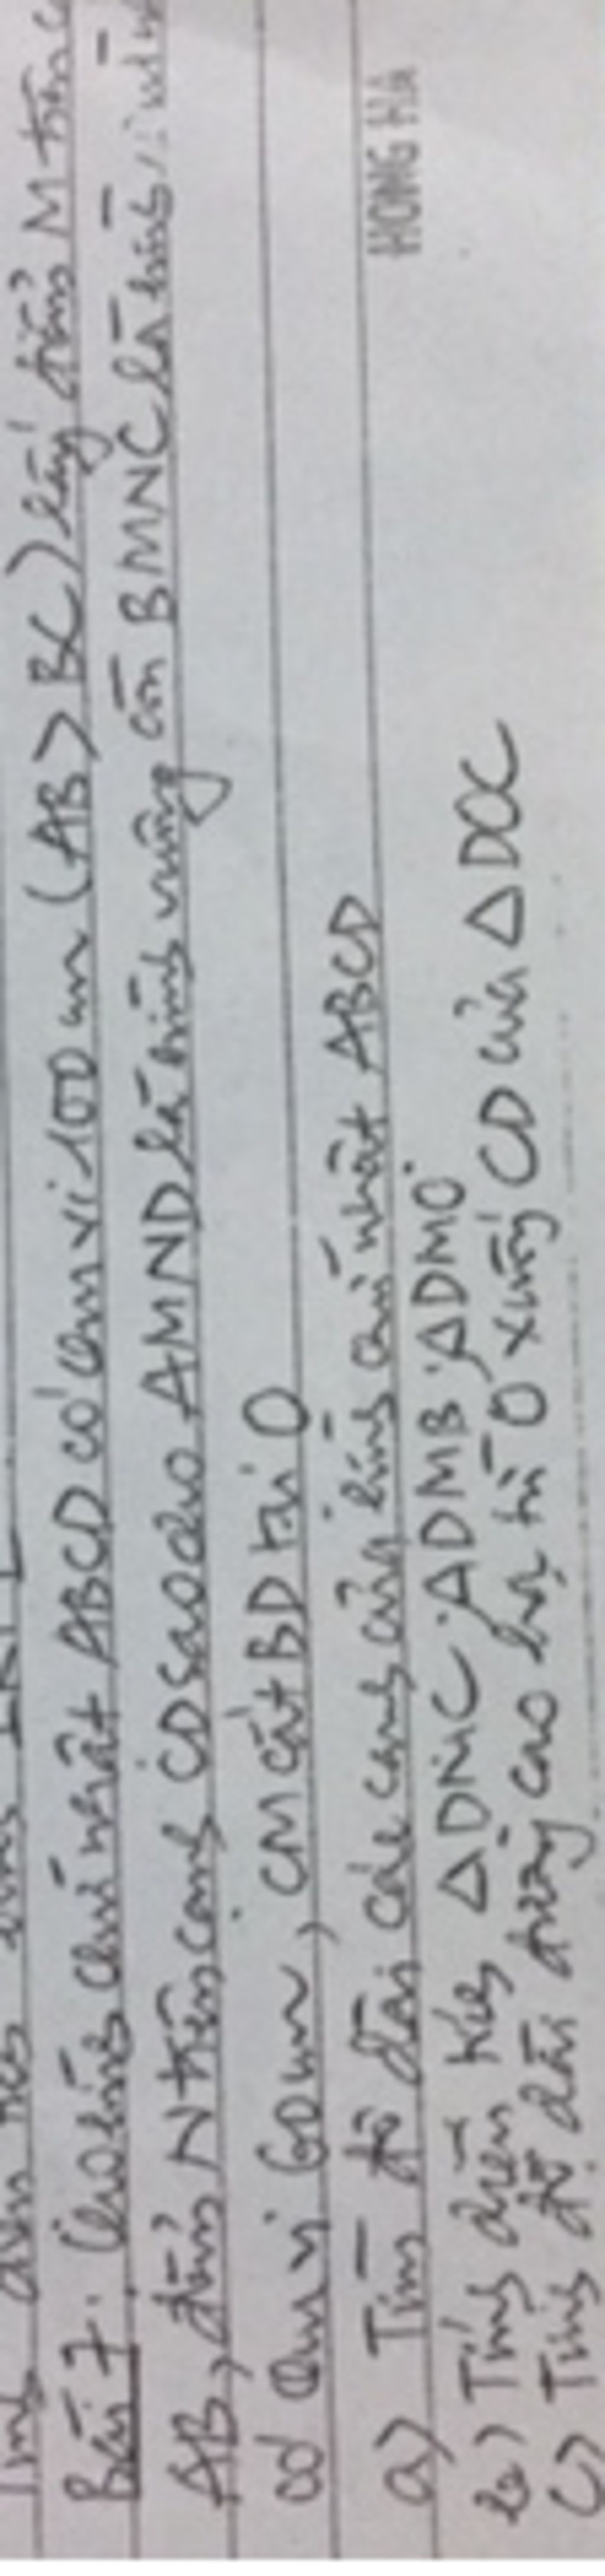 Bài 7. Cho hình chữ nhật ABCD có chu vi 100 cm (AB > BC) lấy điểm M trên
AB, điểm N trên cạnh CD sao cho AMND là hình vuông còn BMNC là hình
có chu vi 60 cm, CM cắt BD tại O
HONG HA
a) Tìm độ dài các cạnh của hình chữ nhật ABCD
b) Tính diện tích ΔDMC, ΔDMB, ΔDMO
c) Tính độ dài đường cao hạ từ O xuống CD của ΔDOC